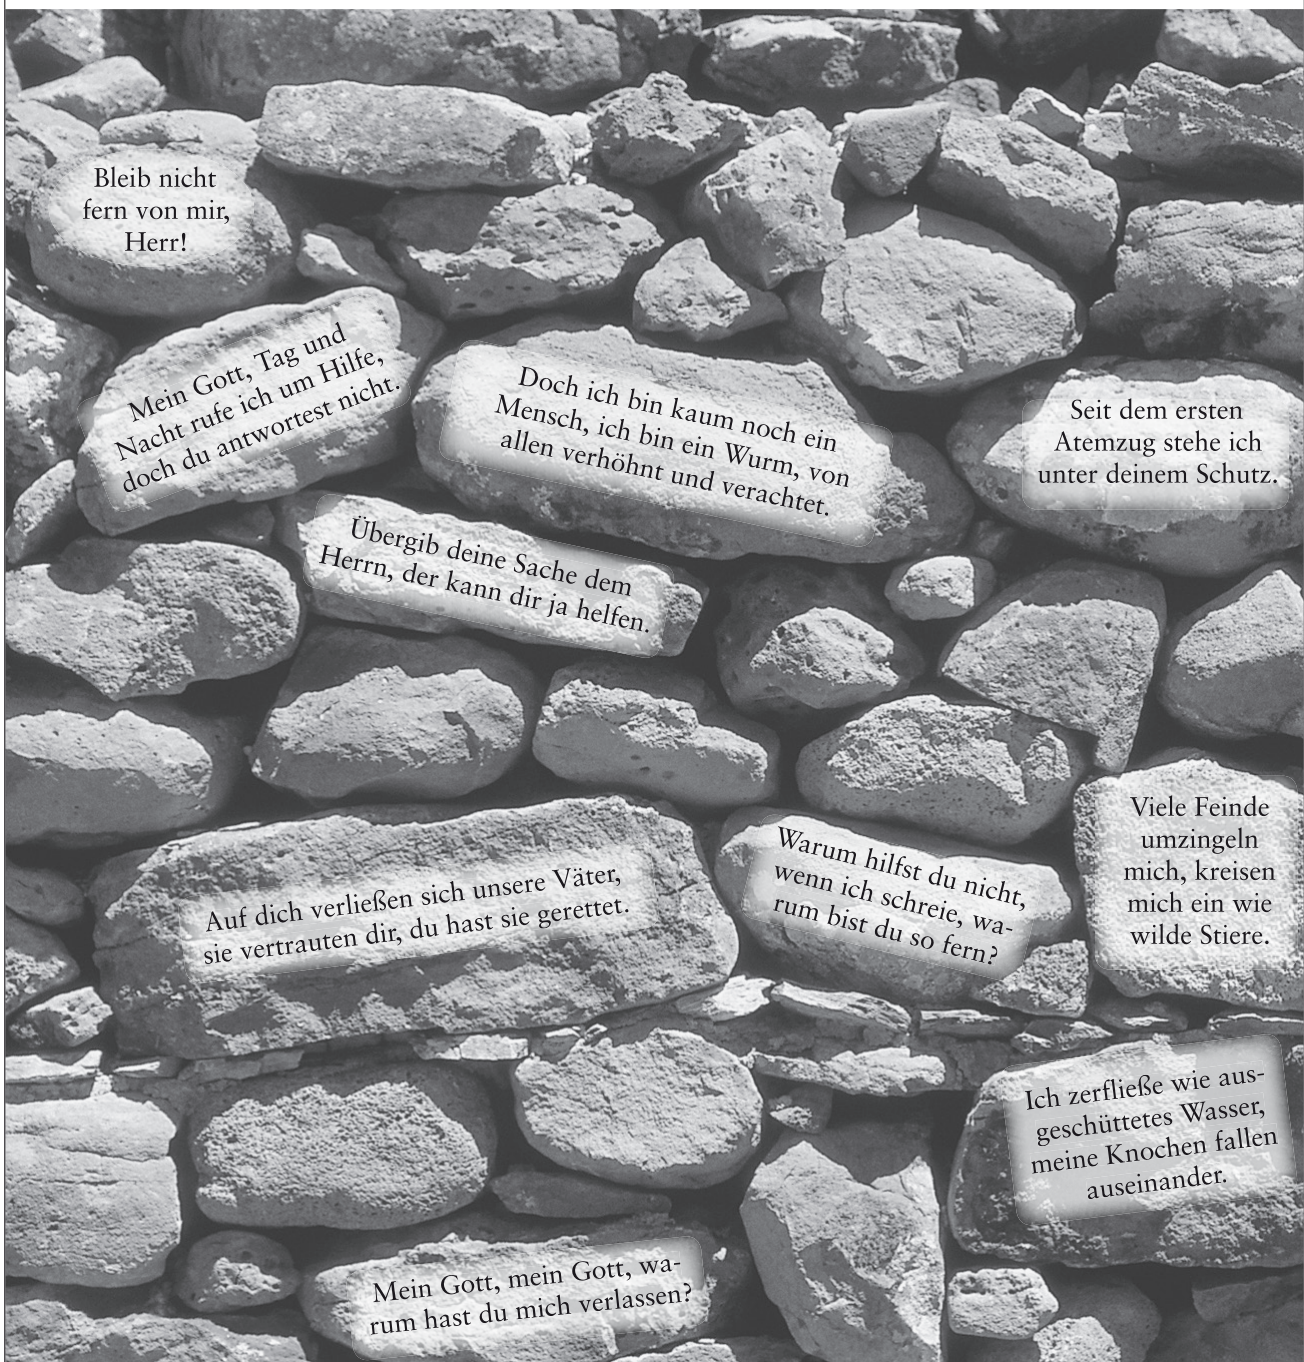 Bleib nicht
fern von mir,
Herr!
Mein Gott, Tag und
Nacht rufe ich um Hilfe,
doch du antwortest nicht.
Doch ich bin kaum noch ein
Mensch, ich bin ein Wurm, von
allen verhöhnt und verachtet.
Seit dem ersten
Atemzug stehe ich
unter deinem Schutz.
Übergib deine Sache dem
Herrn, der kann dir ja helfen.
Auf dich verließen sich unsere Väter,
sie vertrauten dir, du hast sie gerettet.
Warum hilfst du nicht,
wenn ich schreie, wa-
rum bist du so fern?
Viele Feinde
umzingeln
mich, kreisen
mich ein wie
wilde Stiere.
Ich zerfließe wie aus-
geschüttetes Wasser,
meine Knochen fallen
auseinander.
Mein Gott, mein Gott, wa-
rum hast du mich verlassen?